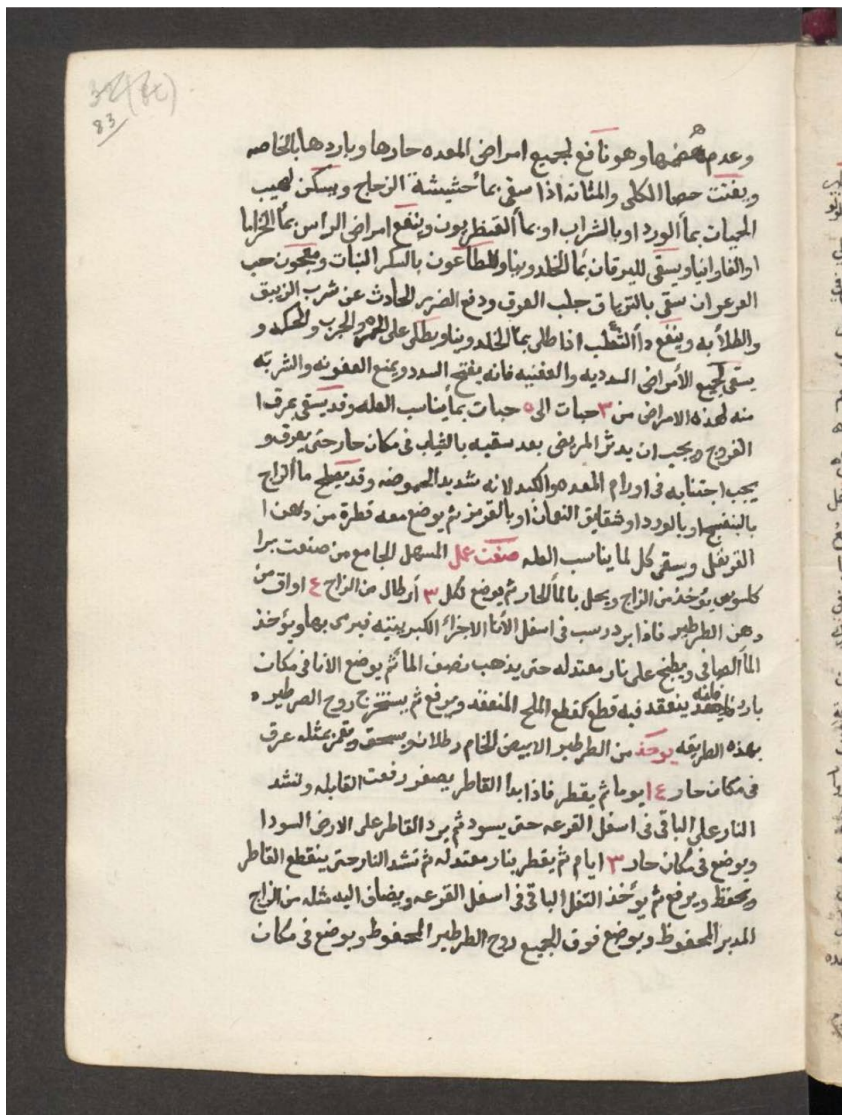 83
وعدم هضمها وهو نافع لجميع امراض المعده حارها وباردها بالخاصه
ويفتت حصا الكلى والمثانه اذا سقى بمأ حشيشة الزجاج ويسكن لهيب
الحميات بمأ الورد او بالشراب او بمأ القنطريون وينفع امراض الراس بمأ الخزاما
او الفاوانيا ويسقى لليرقان بمأ الخلدونيا وللطاعون بالسكر النبات ومعجون حب
العرعر ان سقى بالترياق جلب العرق ودفع الضرر الحادث عن شرب الزيبق
والطلأ به وينفع دأ الثعلب اذا طلى بمأ الخلدونيا ويطلى على والجرب والحكه و
يسقى لجميع الأمراض السدديه والعفنيه فانه يفتح السدد ويمنع العفونه والشربه
منه لهذه الامراض من ٣ حبات الى ٥ حبات بمأ يناسب العله وقد يسقى بمرق ا
الفروج ويجب ان يدثر المريض بعد سقيه بالثياب فى مكان حار حتى يعرق و
يجب اجتنابه فى اورام المعده والكبد لانه شديد الحموضه وقد يقطح مأ الزاج
بالبنفسج او بالورد او شقايق النعمان او بالقرمز ثم يوضع معه قطرة من دهن ا
القرنفل ويسقى كل لما يناسب العله صنعت عمل المسهل الجامع من صنعت برا
كلسوس يؤخذ من الزاج ويحل بالمأ الحار ثم يوضع لكل ٣ أرطال من الزاج ٤ اواق من
دهن الطرطير فاذا برد رسب فى اسفل الأنا الاجزأ الكبريتيه فيرمى بها ويؤخذ
المأ الصافى ويطبخ على نار معتدله حتى يذهب نصف المأ ثم يوضع الانا فى مكان
بارد فانه ينعقد فيه قطع كقطع الملح المنعقد ويرفع ثم يستخرج روح الطرطير
بهذه الطريقه يوخذ من الطرطير الابيض الخام رطلان ويسحق ويغمر بمثله عرق
فى مكان حار ١٤ يوما ثم يقطر فاذا بدا القاطر يصفر رفعت القابله وتشد
النار على الباقى فى اسفل القرعه حتى يسود ثم يرد القاطر على الارض السودا
ويوضع فى مكان حار ٣ ايام ثم يقطر بنار معتدله ثم تشد النار حتى ينقطع القاطر
ويحفظ ويرفع ثم يؤخذ الثفل الباقى فى اسفل القرعه ويضاف اليه مثله من الزاج
المدبر المحفوظ ويوضع فوق الجميع روح الطرطير المحفوظ ويوضع فى مكان